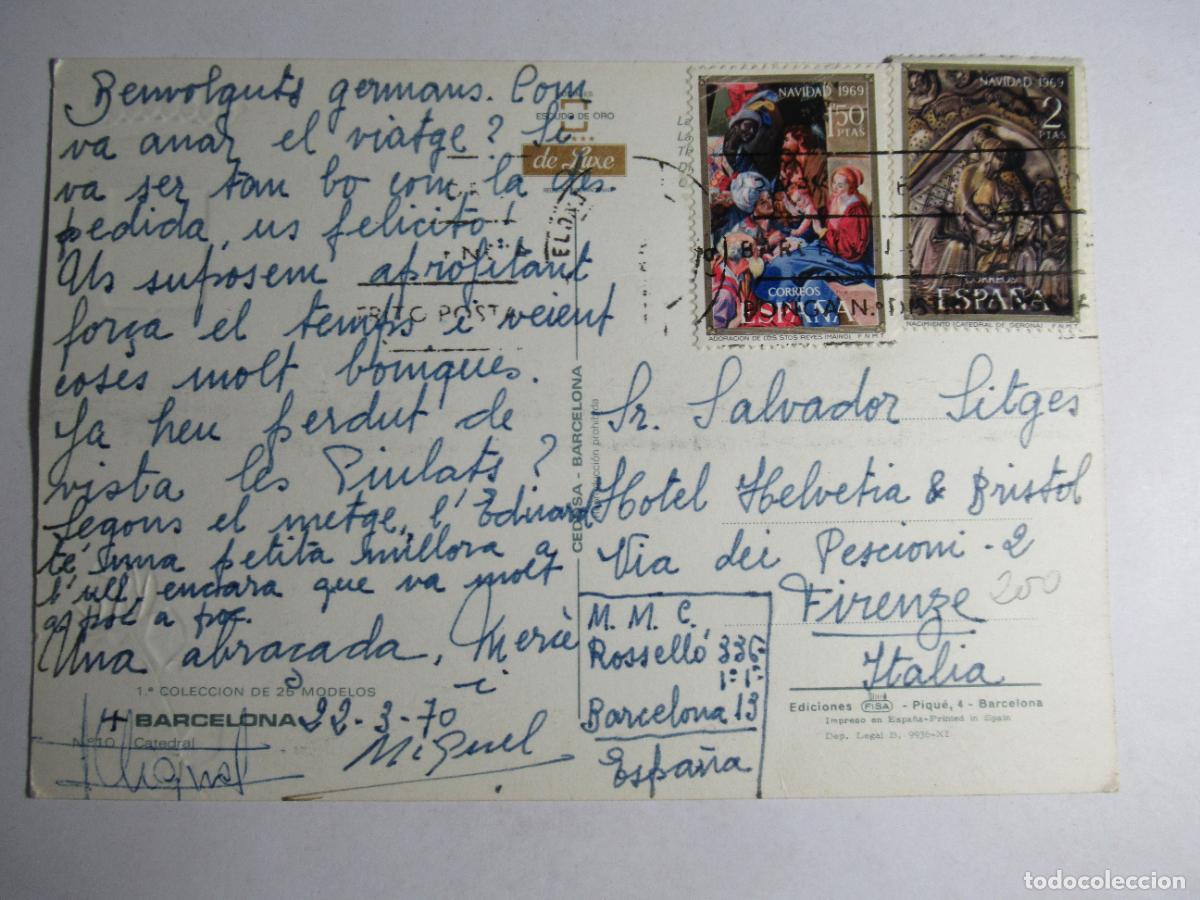 Benvolguts germans. Com
va anar el viatge? Si
va ser tan bo com la des
pedida, us felicito!
Us suposem aprofitant
força el temps i veient
coses molt boniques.
Ja heu perdut de
vista les Piulats?
Segons el metge, l'Eduard
té una petita millora a
l'ull, encara que va molt
a poc.
Una abraçada, Mercè
i
22-3-70
Miguel
1.ª COLECCION DE 25 MODELOS
BARCELONA
N.º 10 Catedral
ESCUDO DE ORO
de Luxe
CEDOSA - BARCELONA
prohibida
NAVIDAD 1969
1,50
PTAS
CORREOS
ESPAÑA
ADORACION DE LOS STOS REYES (MAINO) F.N.M.T.
NAVIDAD 1969
2
PTAS
CORREOS
ESPAÑA
NACIMIENTO (CATEDRAL DE GERONA) F.N.M.T.
Sr. Salvador Sitges
Hotel Helvetia & Bristol
Via dei Pescioni - 2
Firenze
Italia
200
M. M. C.
Rosselló 336
1º 1ª
Barcelona 13
España
Ediciones FISA - Piqué, 4 - Barcelona
Impreso en España-Printed in Spain
Dep. Legal B. 9936-XI
todocoleccion